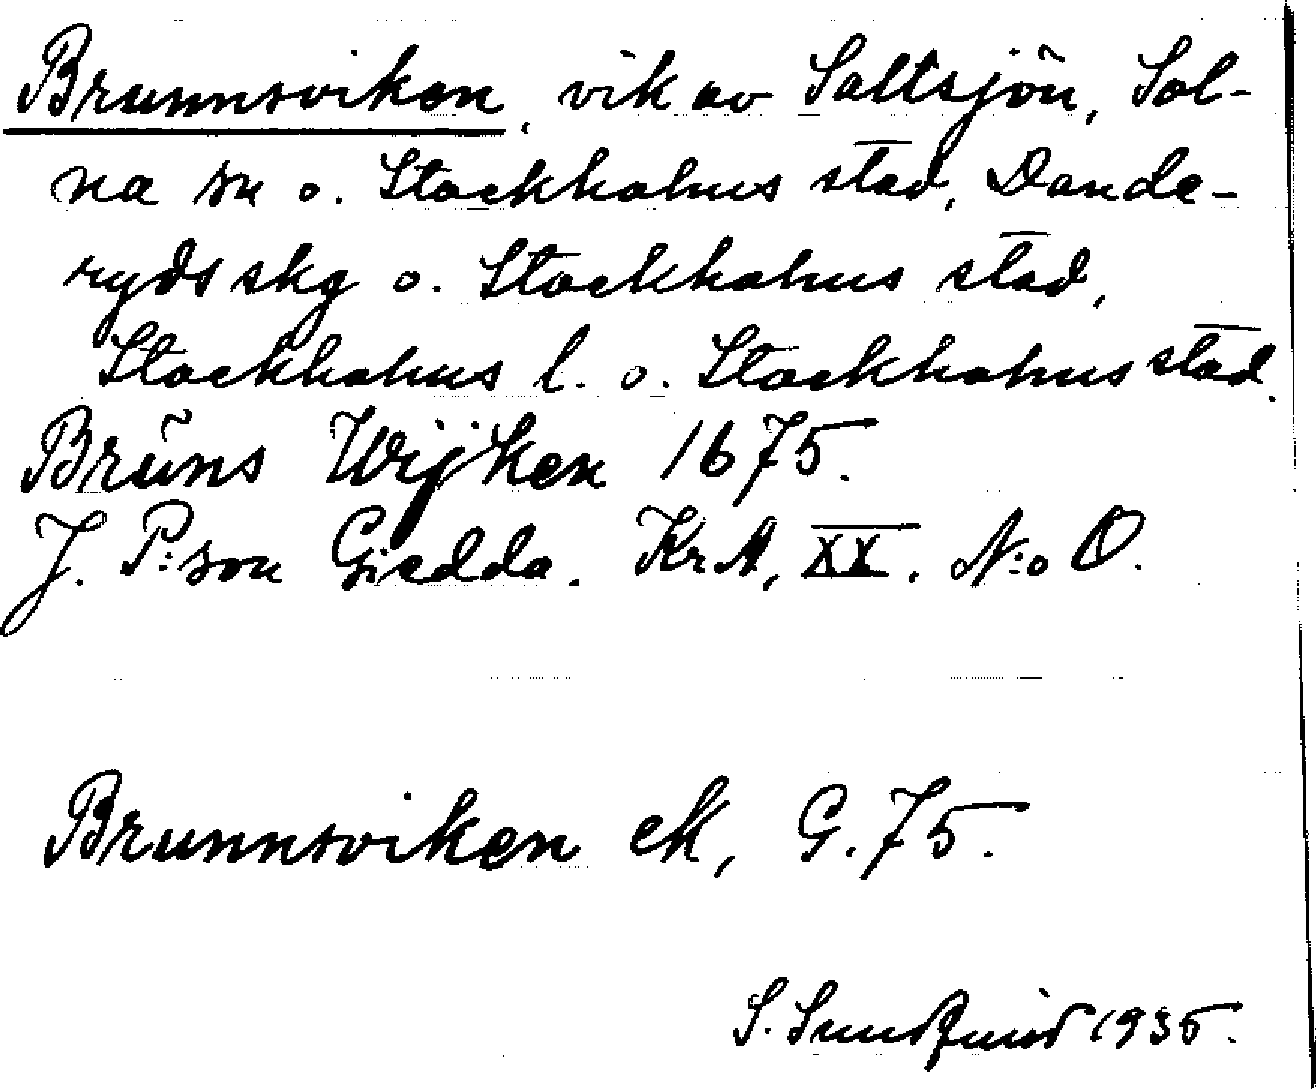 Brunnsviken, vik av Saltsjön, Sol-
na sn o. Stockholms stad, Dande-
ryds skg o. Stockholms stad,
Stockholms l. o. Stockholms stad.
Brŭns Wijken 1675.
J. P:son Giedda. KrA, XX. N:o O.
Brunnsviken ek, G. 75.
S. Sundqvist 1935.